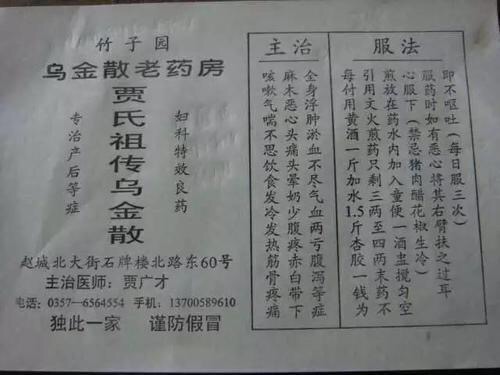 竹子园
乌金散老药房
专治产后等症
贾氏祖传乌金散
妇科特效良药
赵城北大街石牌楼北路东60号
主治医师：贾广才
电话：0357—6564554 手机：13700589610
独此一家 谨防假冒
主治
咳嗽气喘不思饮食发冷发热筋骨疼痛
麻木恶心头痛头晕奶少腹疼赤白带下
全身浮肿淤血不尽气血两亏腹泻等症
服法
每付用黄酒一斤加水1.5斤杏胶一钱为
引用文火煎药只剩三两至四两末药不
煎放在药水内加入童便一酒盅搅匀空
心服下（禁忌猪肉醋花椒生冷）
服药时如有恶心将其右臂扶之过耳
即不呕吐（每日服三次）